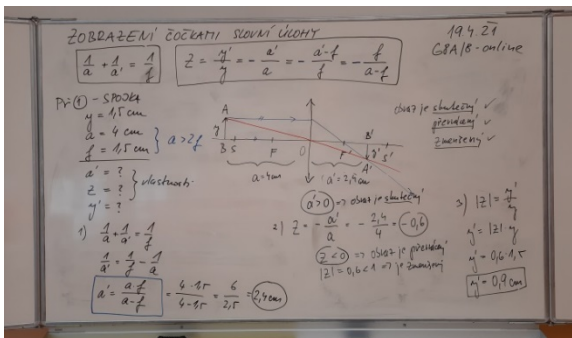 ZOBRAZENÍ ČOČKAMI SLOVNÍ ÚLOHY
19.4.21
G8A/B - online
1/a + 1/a' = 1/f
Z = y'/y = - a'/a = - (a'-f)/f = - f/(a-f)
Př. ① - SPOJKA
y = 1,5 cm
a = 4 cm
f = 1,5 cm
} a > 2f
a' = ?
z = ?
y' = ?
} vlastnosti
A
y
B S F O F' B' y' S' A'
a = 4cm
a' = 2,4cm
obraz je skutečný ✓
převrácený ✓
zmenšený ✓
1) 1/a + 1/a' = 1/f
1/a' = 1/f - 1/a
a' = a·f/(a-f) = 4·1,5/(4-1,5) = 6/2,5 = 2,4cm
a' > 0 => obraz je skutečný
2) Z = - a'/a = - 2,4/4 = -0,6
Z < 0 => obraz je převrácený
|Z| = 0,6 < 1 => je zmenšený
3) |Z| = y'/y
y' = |Z|·y
y' = 0,6·1,5
y' = 0,9 cm